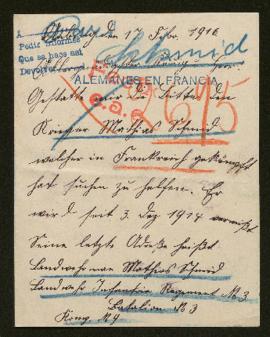 den 17 Febr. 1916
Schmid
A
Pedir informes
Que se hace así
Devolver
ALEMANES EN FRANCIA
Gestatte mir die Bitte den
Mathias Schmid
welcher in Frankreich gekämpft
hat suchen zu helfen. Er
wird seit 3. Dez 1914 vermißt
Seine letzte Adreße heißt
Landwehrman Mathias Schmid
Landwehr Infanterie Regiment No 3
Batalion No 3